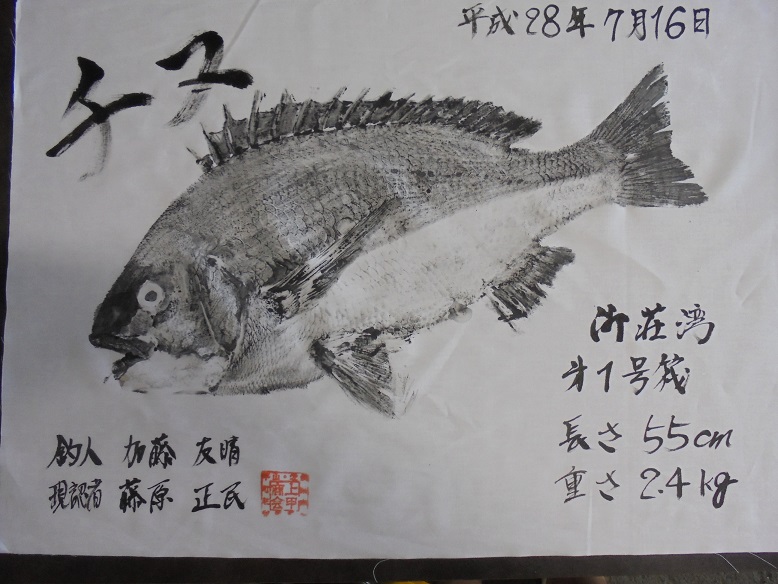 平成28年7月16日
チヌ
御荘湾
才1号筏
長さ55cm
重さ2.4kg
釣人 加藤 友晴
現認者 藤原 正民